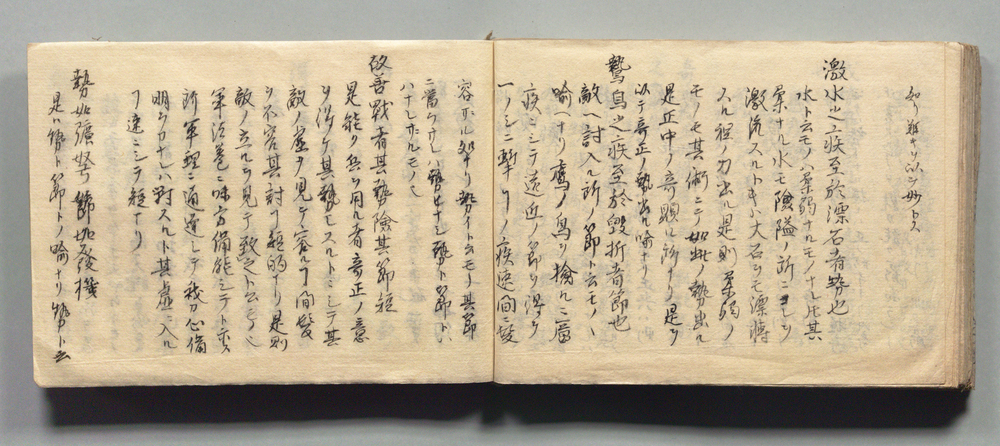 如り難キヲ以テ妙トス
激水之疾至於漂石者勢也
水ト云モノハ柔弱ナルモノナレ𪜈其
柔ナル水モ險隘ノ所ニヨレヲ
激流スルトキハ大石ヲモ漂轉
スル程ノ力出ル是則柔弱ノ
モノモ其術ニテ如此ノ勢出ル
是正中ノ奇顕ル所ナリ是ヲ
以テ奇正ノ勢出ル喩ナリ
鷙鳥之疾至於毀折者節也
敵ヘ討入ル所ノ節ト云モノハ
喩ヘナリ鷹ノ鳥ヲ撿ルニ
疾ニシテ遠近ノ節ヲ得テ
一ノシニ撃ツノ疾速間ニ髪
容ホル処ナリ勢イト云モノ其節
ニ當ラサレハ勢ヒナシ勢ト節トハ
ハナレホルモノ也
故善戰者其勢險其節短
是能ク兵ヲ用ル者奇正ノ意
ヲ得テ其勢モスルトニシテ其
敵ノ虚ヲ見テ容ルヿ間髪
ヲ不容其討ヿ短的ナリ是則
敵ノ立ルヲ見テ致之ト云モ也
軍法巻ニ味方備能シテトホス
所軍理ニ通達シテ我カ心備
明ラカナレハ對スルト其虚ニ入ル
ヿ速ニシテ短ナリ
勢如彍弩節如發機
是ハ勢ト節トノ喩ナリ勢ト云